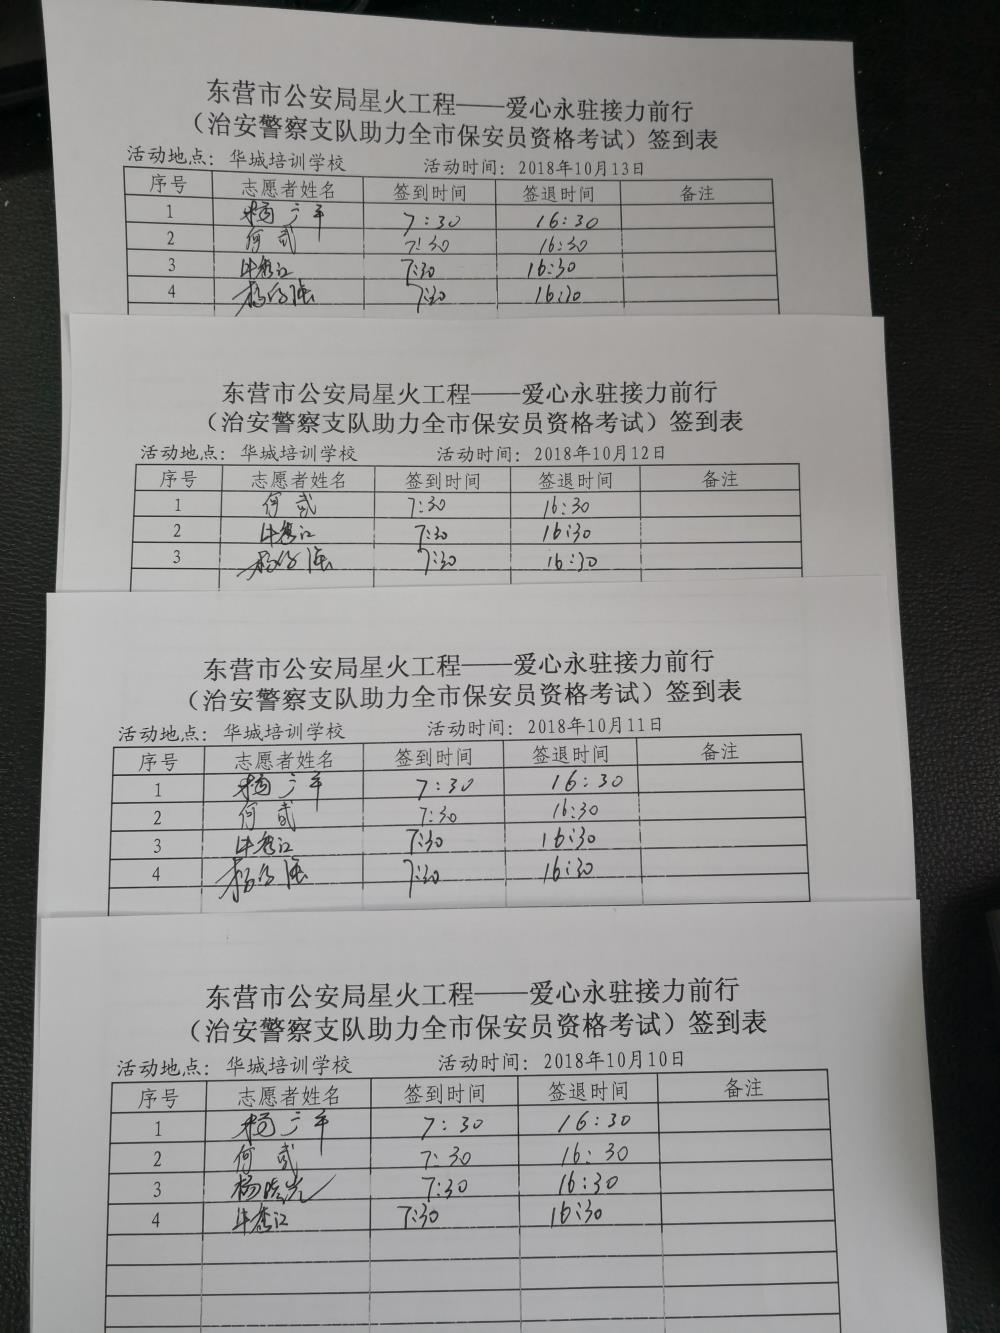 东营市公安局星火工程——爱心永驻接力前行
（治安警察支队助力全市保安员资格考试）签到表
活动地点：华城培训学校 活动时间：2018年10月13日
序号 志愿者姓名 签到时间 签退时间 备注
1 7:30 16:30
2 何贰 7:30 16:30
3 7:30 16:30
4 7:30 16:30
东营市公安局星火工程——爱心永驻接力前行
（治安警察支队助力全市保安员资格考试）签到表
活动地点：华城培训学校 活动时间：2018年10月12日
序号 志愿者姓名 签到时间 签退时间 备注
1 何贰 7:30 16:30
2 7:30 16:30
3 7:30 16:30
东营市公安局星火工程——爱心永驻接力前行
（治安警察支队助力全市保安员资格考试）签到表
活动地点：华城培训学校 活动时间：2018年10月11日
序号 志愿者姓名 签到时间 签退时间 备注
1 7:30 16:30
2 何贰 7:30 16:30
3 7:30 16:30
4 7:30 16:30
东营市公安局星火工程——爱心永驻接力前行
（治安警察支队助力全市保安员资格考试）签到表
活动地点：华城培训学校 活动时间：2018年10月10日
序号 志愿者姓名 签到时间 签退时间 备注
1 7:30 16:30
2 何贰 7:30 16:30
3 7:30 16:30
4 7:30 16:30